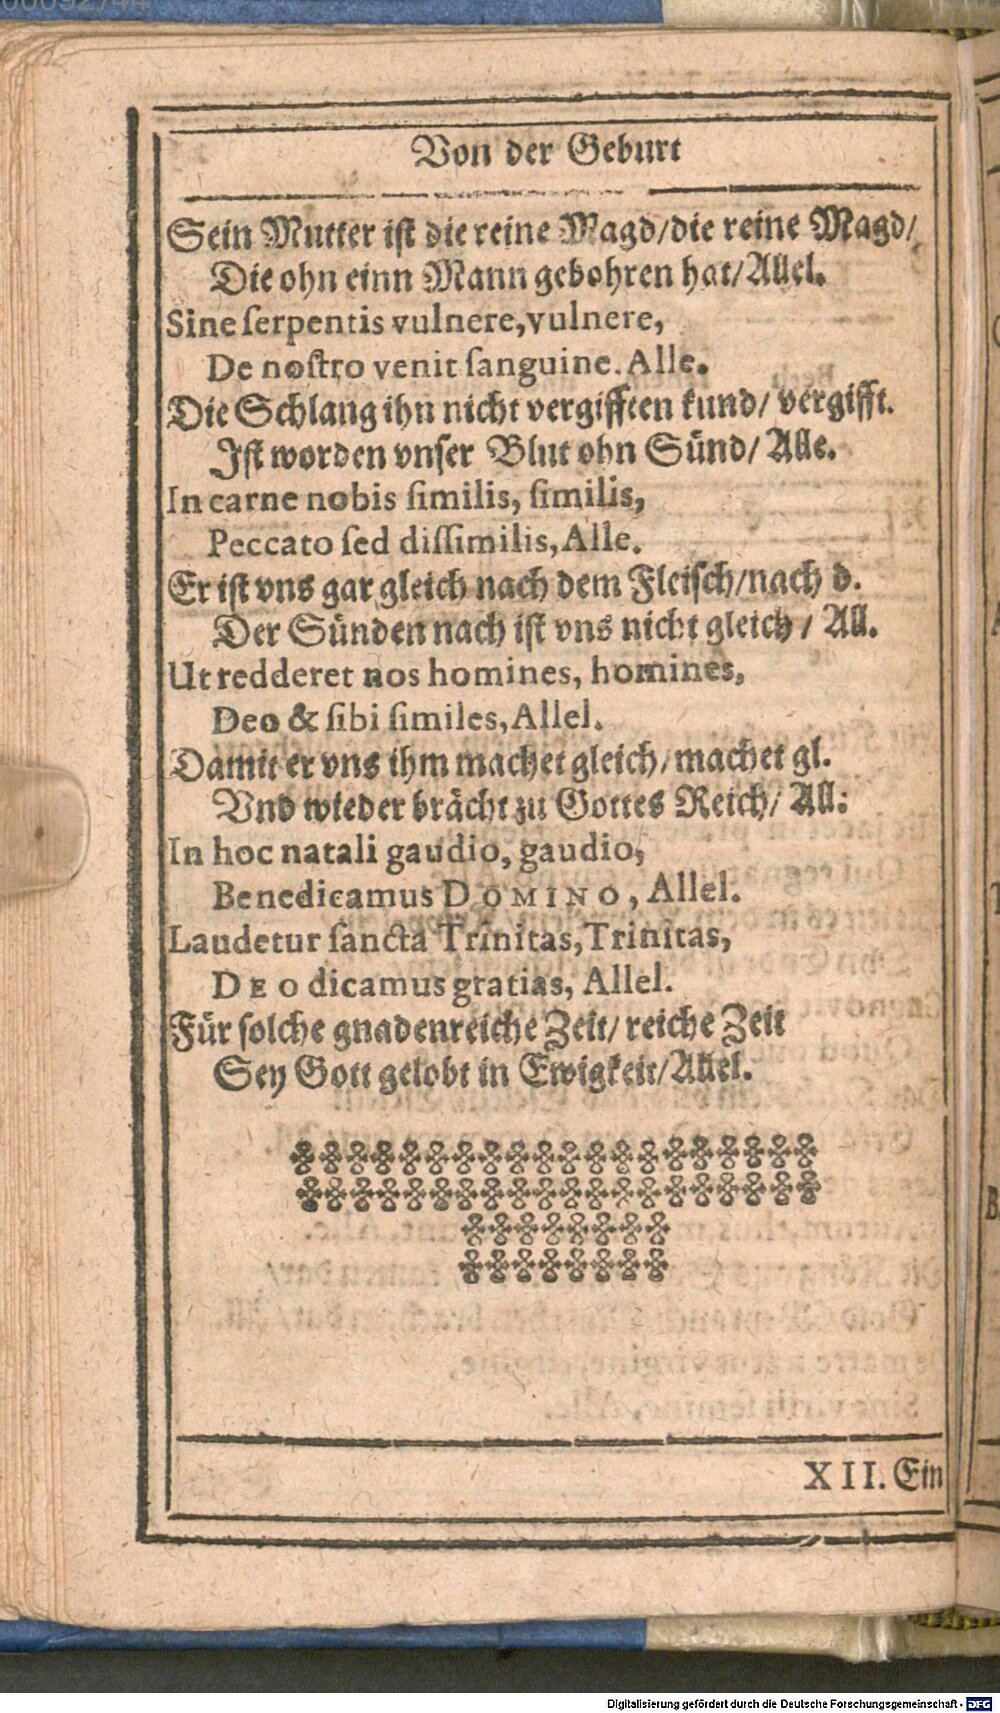 Von der Geburt
Sein Mutter ist die reine Magd/die reine Magd/
Die ohn einn Mann gebohren hat/Allel.
Sine ſerpentis vulnere,vulnere,
De noſtro venit ſanguine.Alle.
Die Schlang ihn nicht vergifften kund/ vergifft.
Iſt worden vnſer Blut ohn Sünd/ Alle.
In carne nobis ſimilis, ſimilis,
Peccato ſed diſſimilis,Alle.
Er iſt vns gar gleich nach dem Fleiſch/nach d.
Der Sünden nach iſt vns nicht gleich / All.
Ut redderet nos homines, homines,
Deo & ſibi ſimiles,Allel.
Damit er vns ihm machet gleich/machet gl.
Vnd wieder brächt zu Gottes Reich/ All:
In hoc natali gaudio, gaudio,
Benedicamus DOMINO, Allel.
Laudetur ſancta Trinitas,Trinitas,
DEO dicamus gratias, Allel.
Für ſolche gnadenreiche Zeit/ reiche Zeit
Sey Gott gelobt in Ewigkeit/Allel.
XII. Ein
Digitalisierung gefördert durch die Deutsche Forschungsgemeinschaft - DFG